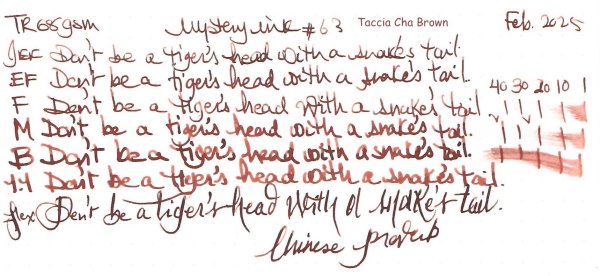 TR68gsm Mystery ink #63 Taccia Cha Brown Feb. 2025
JEF Don't be a tiger's head with a snake's tail.
EF Don't be a tiger's head with a snake's tail.
40 30 20 10 1
F Don't be a tiger's head with a snake's tail
M Don't be a tiger's head with a snake's tail.
B Don't be a tiger's head with a snake's tail.
1.1 Don't be a tiger's head with a snake's tail.
flex Don't be a tiger's head with a snake's tail.
Chinese proverb